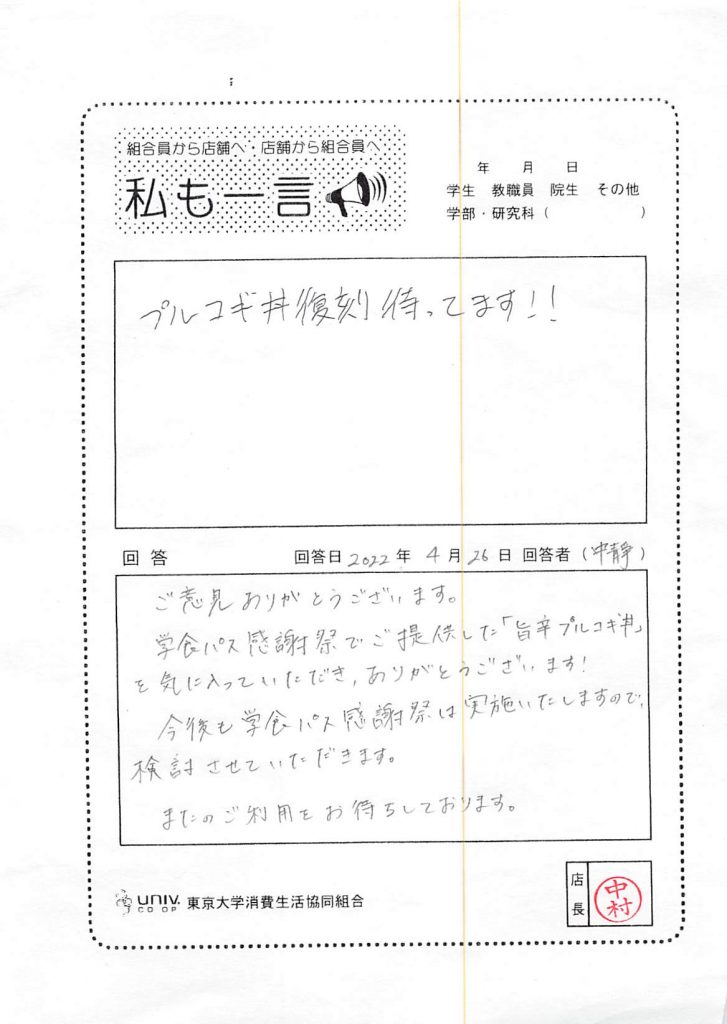 組合員から店舗へ・店舗から組合員へ
私も一言
年 月 日
学生 教職員 院生 その他
学部・研究科( )
プルコギ丼復刻待ってます!!
回答 回答日 2022年 4月 26日 回答者(中靜)
ご意見ありがとうございます。
学食パス感謝祭でご提供した「旨辛プルコギ丼」
を気に入っていただき、ありがとうございます!
今後も学食パス感謝祭は実施いたしますので、
検討させていただきます。
またのご利用をお待ちしております。
UNIV. CO-OP 東京大学消費生活協同組合
店長
中村